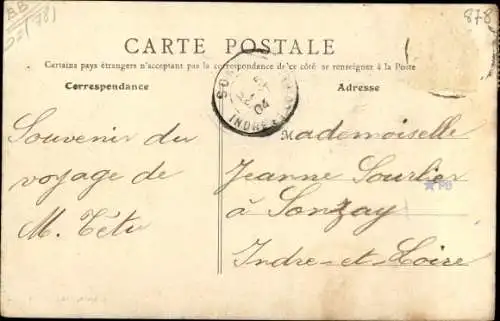 BB
(78)
878
CARTE POSTALE
Certains pays étrangers n'acceptant pas la correspondance de ce côté se renseignez à la Poste
Correspondance
Adresse
04
INDRE
Souvenir du
voyage de
M. Tétu
Mademoiselle
Jeanne Sourlier
à Sonzay
Indre-et-Loire
PB